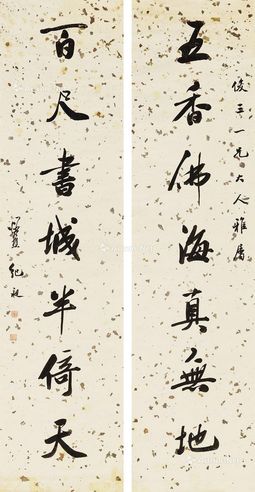 俊三一兄大人雅属
五香佛海真無地
百尺書城半倚天
紀昶